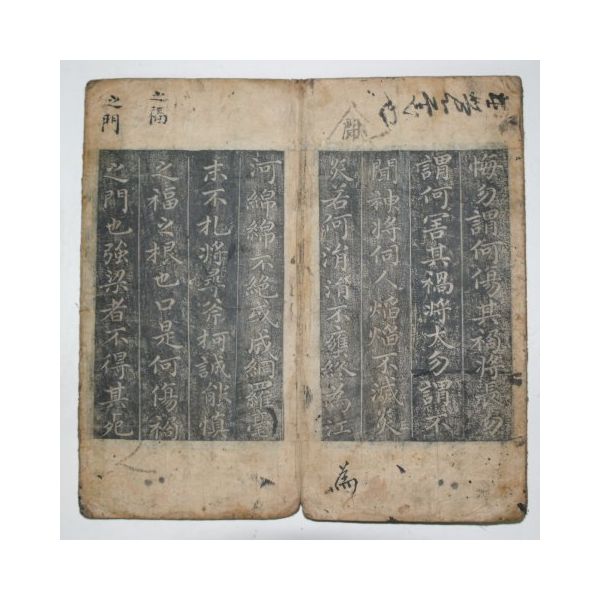 悔勿謂何傷其禍將長勿
謂何害其禍將大勿謂不
聞神將伺人焰焰不滅炎
炎若何涓涓不壅終為江
為
河綿綿不絕或成網羅毫
末不札將尋斧柯誠能慎
之福
之福之根也口是何傷禍
之門
之門也強梁者不得其死